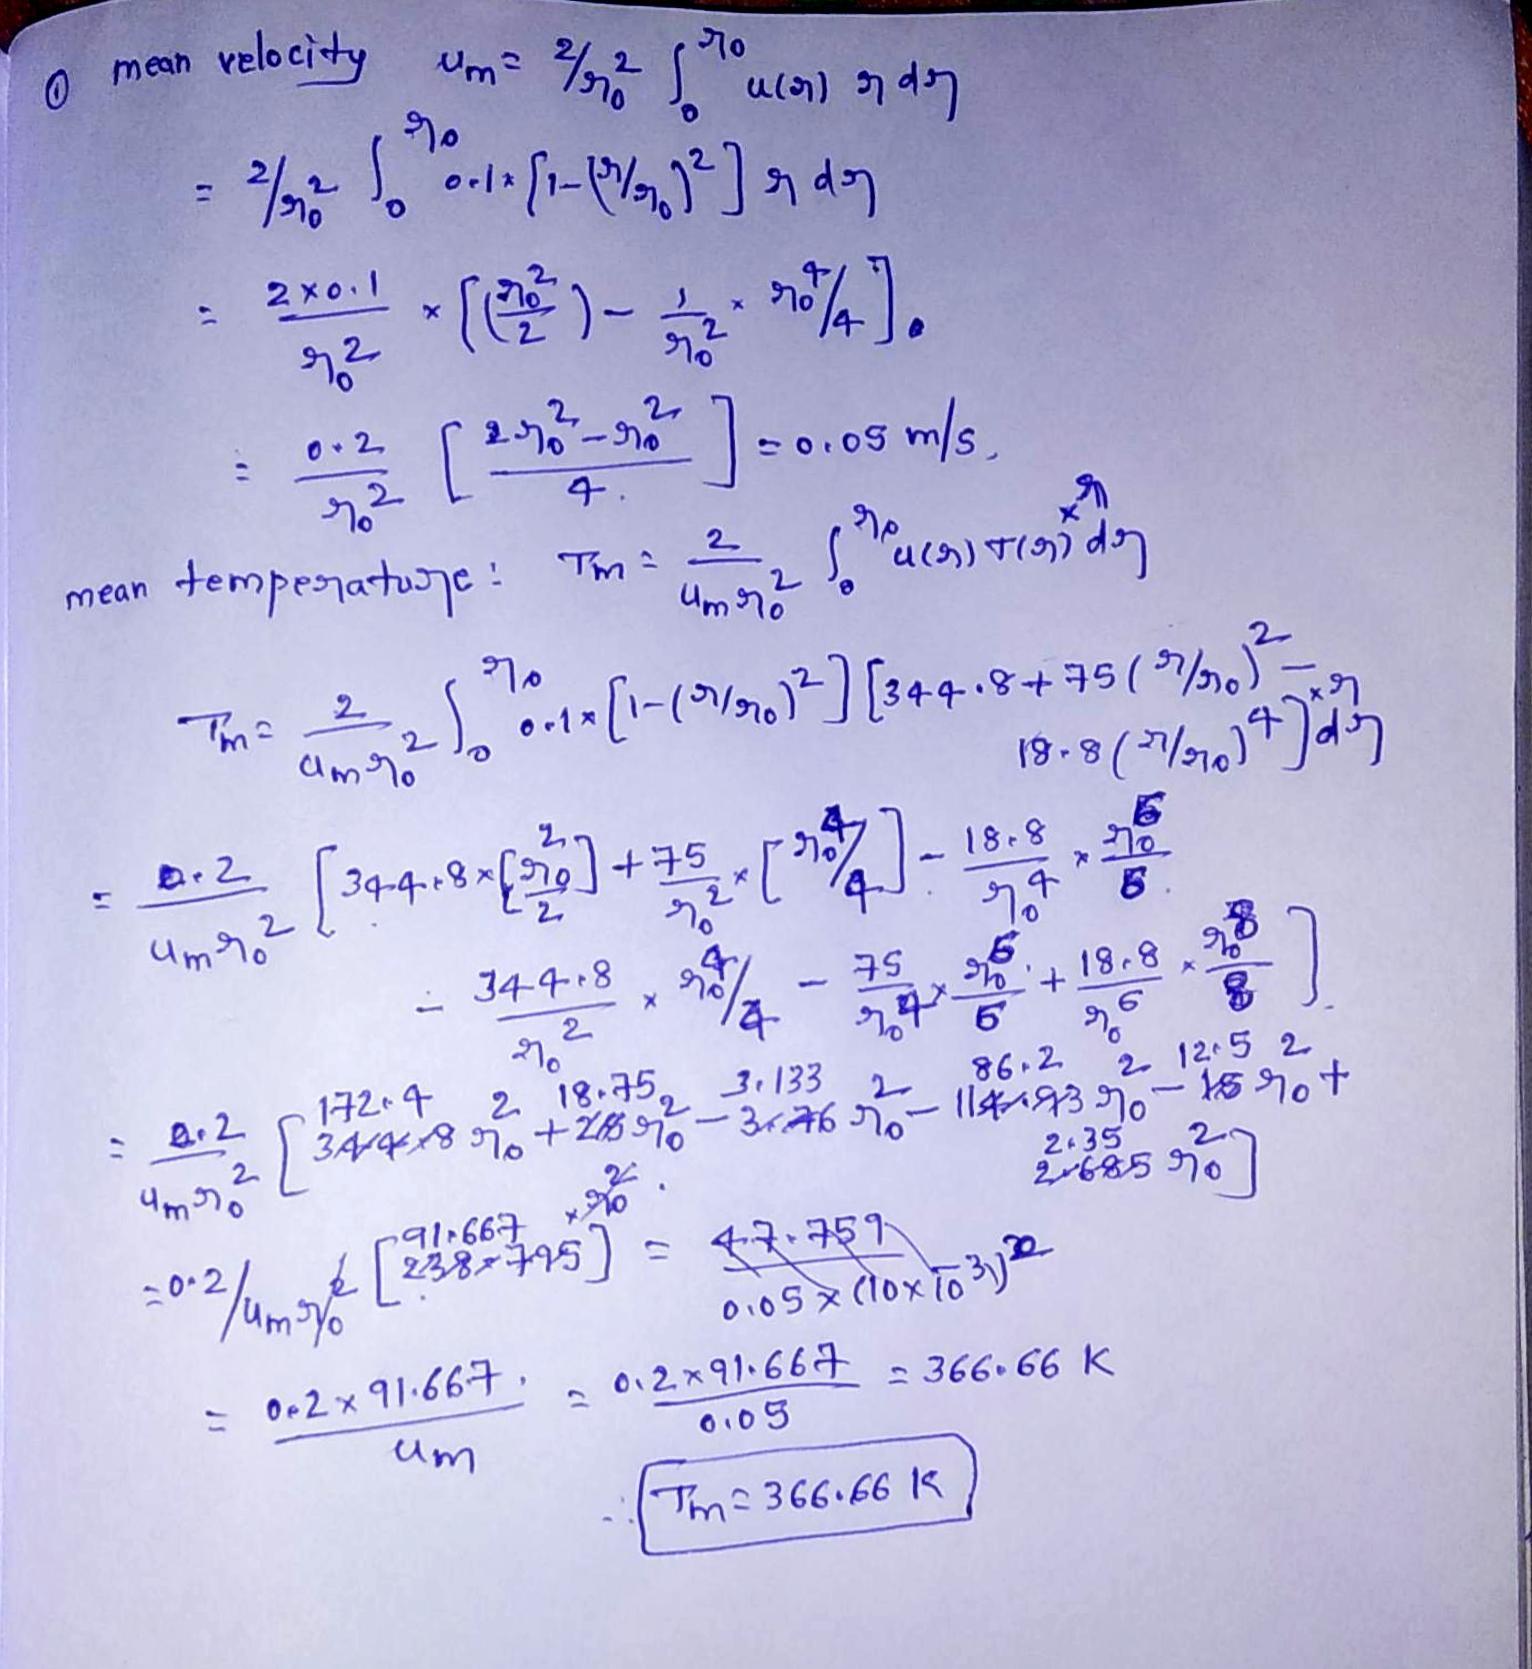 ① mean velocity um = 2/r₀² ∫₀^r₀ u(r) r dr
= 2/r₀² ∫₀^r₀ 0.1 × [1-(r/r₀)²] r dr
= 2×0.1 / r₀² × [(r₀²/2) - 1/r₀² × r₀⁴/4].
= 0.2 / r₀² [2r₀² - r₀² / 4.] = 0.05 m/s.
mean temperature: Tm = 2 / um r₀² ∫₀^r₀ u(r) T(r) × r dr
Tm = 2 / um r₀² ∫₀^r₀ 0.1 × [1-(r/r₀)²] [344.8 + 75 (r/r₀)² -
18.8 (r/r₀)⁴] × r dr
= 0.2 / um r₀² [344.8 × [r₀²/2] + 75/r₀² × [r₀⁴/4] - 18.8/r₀⁴ × r₀⁶/6.
- 344.8/r₀² × r₀⁴/4 - 75/r₀⁴ × r₀⁶/6 + 18.8/r₀⁶ × r₀⁸/8].
= 0.2 / um r₀² [172.4 r₀² + 18.75 r₀² - 3.133 r₀² - 86.2 r₀² - 12.5 r₀² +
2.35 r₀²]
= 0.2/um r₀² [91.667] × r₀² = 47.759 / 0.05 × (10×10⁻³)²
= 0.2 × 91.667. / um = 0.2 × 91.667 / 0.05 = 366.66 K
∴ Tm = 366.66 K